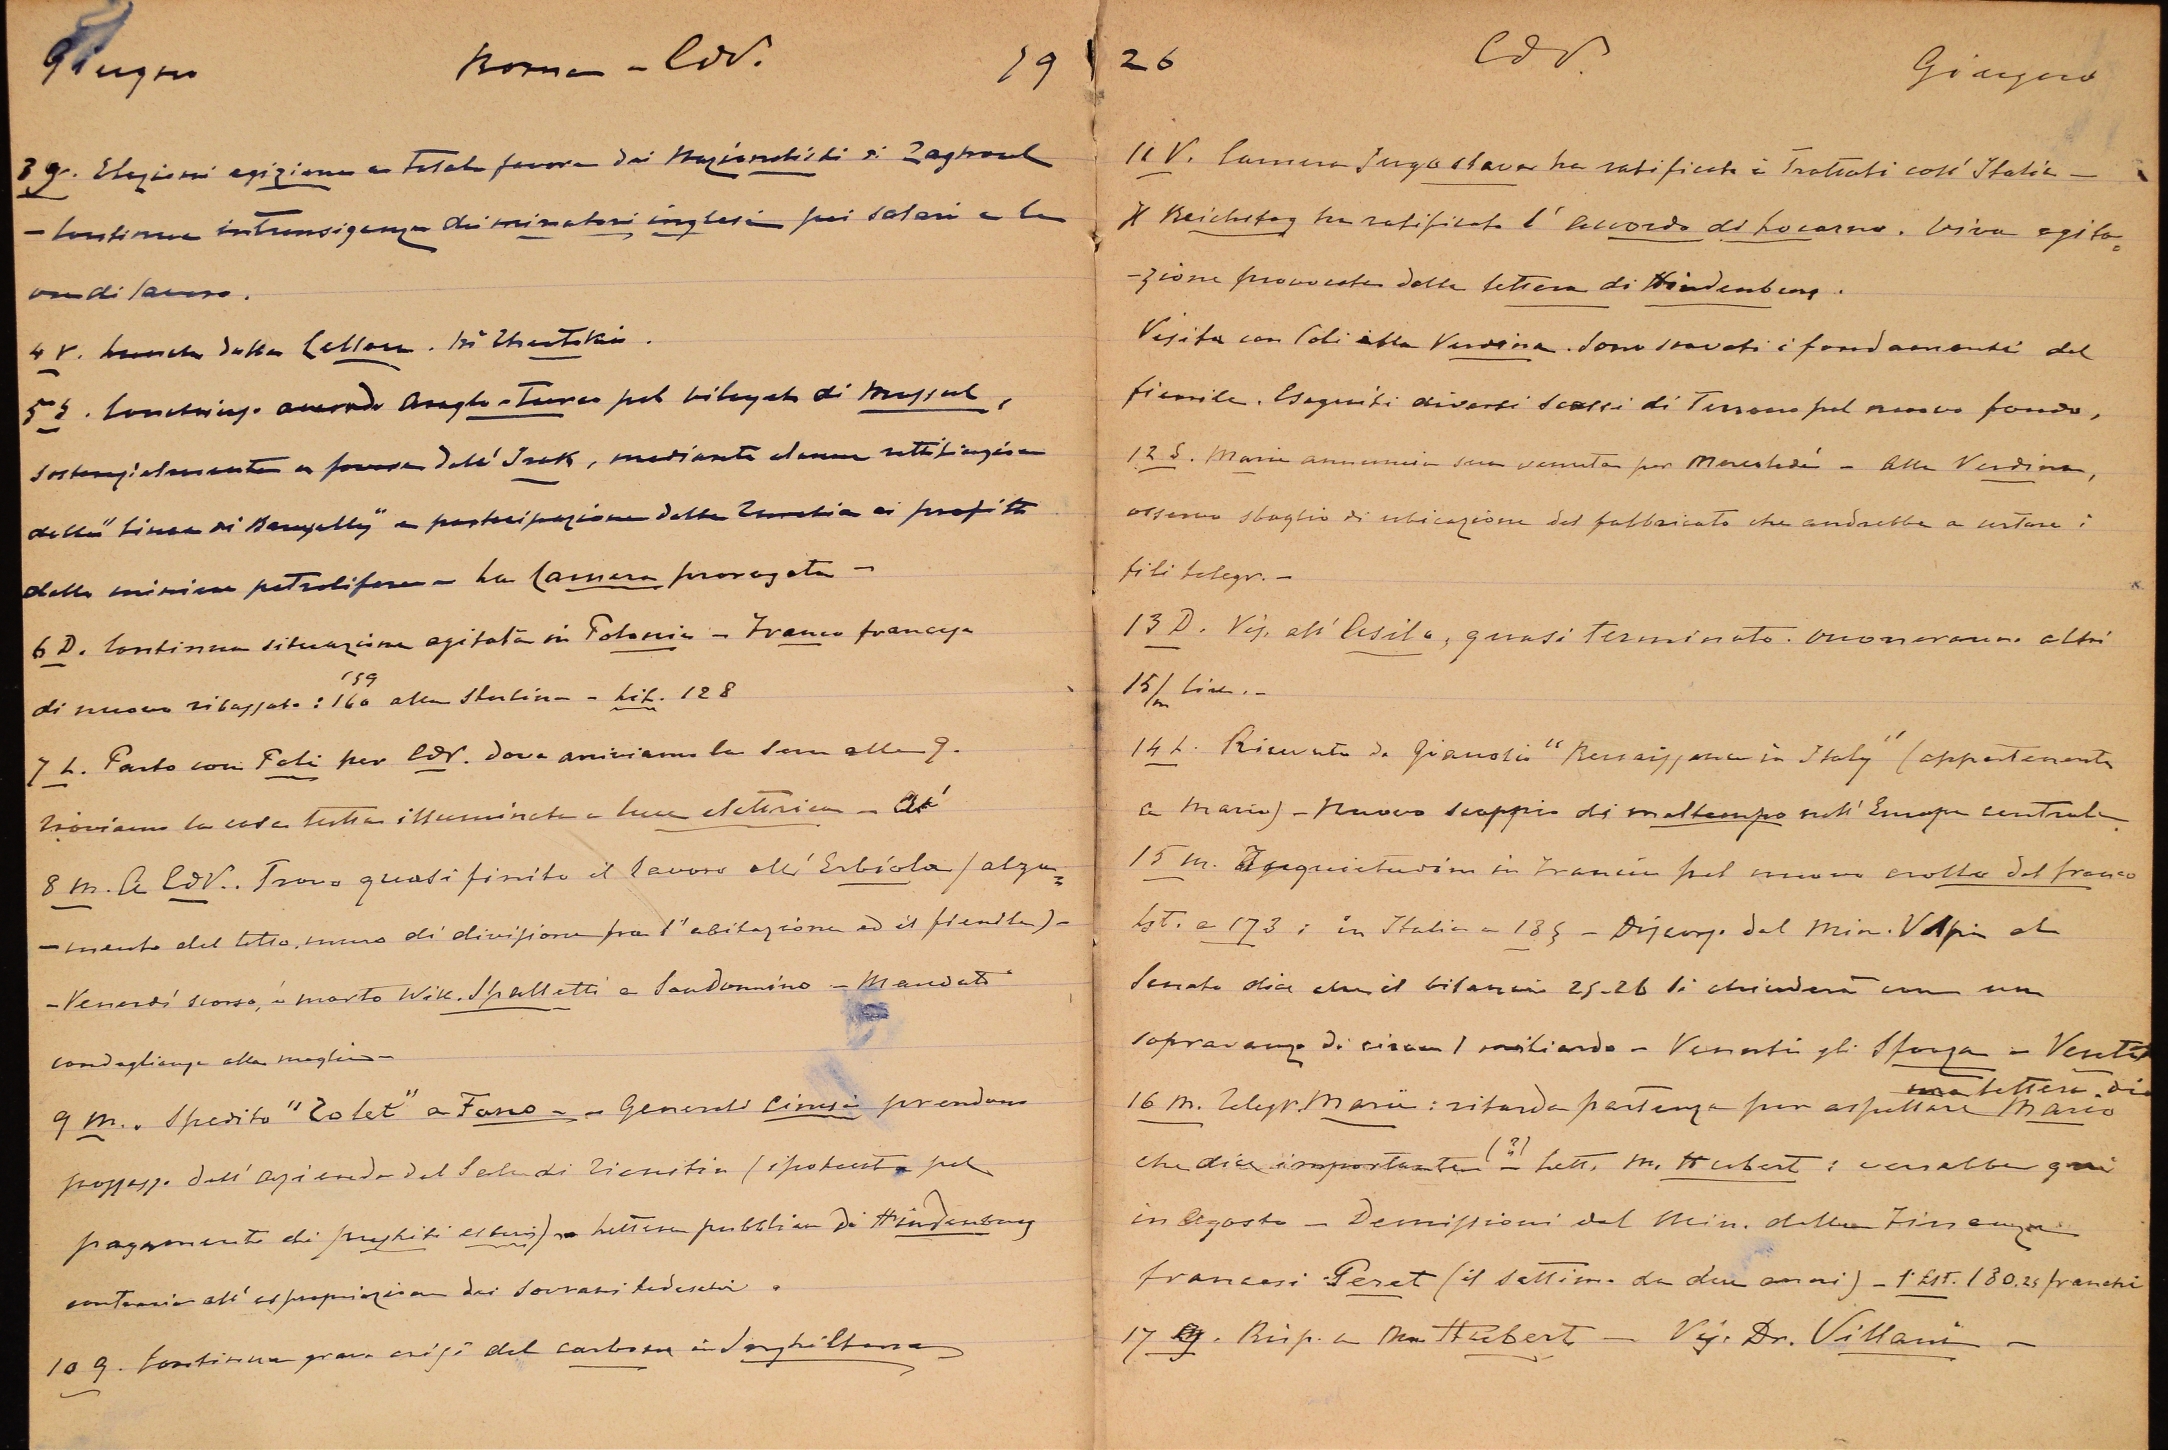 Giugno Roma - CdV. 19
3 g. Elezioni egiziane a totale favore dei Nazionalisti di Zaghoul
- Continua intransigenza dei minatori inglesi pei salari e le
ore di lavoro.
4 V. Lunch dalla
5 S. Concluso accordo Anglo-Turco pel vilayet di Mossul,
sostanzialmente a favore dell'Irak, mediante alcune rettificazioni
della "Linea di Bruxelles" e partecipazione della Turchia ai profitti
delle miniere petrolifere - La Camera prorogata -
6 D. Continua situazione agitata in Polonia - Franco francese
di nuovo ribassato : 160 159 alla Sterlina - Lit. 128
7 L. Parto con Foli per CdV. dove arriviamo la sera alle 9.
Troviamo la casa tutta illuminata a luce elettrica -
8 M. A CdV.. Trovo quasi finito il lavoro all'Erbiola (alza=
-mento del tetto, muro di divisione fra l'abitazione ed il fienile) -
- Venerdì scorso, è morto Wik. Spalletti a Sandonnino - Mandato
condoglianze alla moglie -
9 M.. Spedito "Zolet" a Fano - - Generali Cinesi prendono
possesso dell'azienda del Sale di Tientsin (ipotecata pel
pagamento di prestiti esteri) - Lettera pubblica di Hindenburg
contraria all'espropriazione dei Sovrani tedeschi.
10 g. Continua grave crisi del carbone in Inghilterra
26 CdV. Giugno
11 V. Camera Jugoslava ha ratificato i Trattati coll'Italia -
Il Reichstag ha ratificato l'accordo di Locarno. Viva agita=
-zione provocata dalla lettera di Hindenburg.
Visita con Foli alla Verdina. Sono scavati i fondamenti del
fienile. Eseguiti diversi scassi di Terreno pel nuovo fondo,
12 S. Maria annuncia sua venuta per Mercoledì - Alla Verdina,
osservo sbaglio di ubicazione del fabbricato che andrebbe a urtare i
fili telegr. -
13 D. Vis. all'Asilo, quasi terminato. Occorreranno altri
15/m lire. -
14 L. Ricevuto da "Renaissance in Italy" (appartenente
a Mario) - Nuovo scoppio di maltempo nell'Europa centrale.
15 M. Inquietudini in Francia pel nuovo crollo del franco
Lst. a 173 ; in Italia a 135 - Discorso del Min. Volpi al
Senato dice che il bilancio 25-26 si chiuderà con un
sopravanzo di circa 1 miliardo - Venuti gli Sforza -
16 M. Telegr. Maria : ritarda partenza per aspettare una lettera di Mario
che dice importante (?) - Lett. M. Hubert : verrebbe qui
in Agosto - Demissioni del Min. delle Finanze
francesi Peret (il settimo da due anni) - 1 Lst. 180.25 franchi
17 g. Risp. a Hubert - Vis. Dr. Villani -